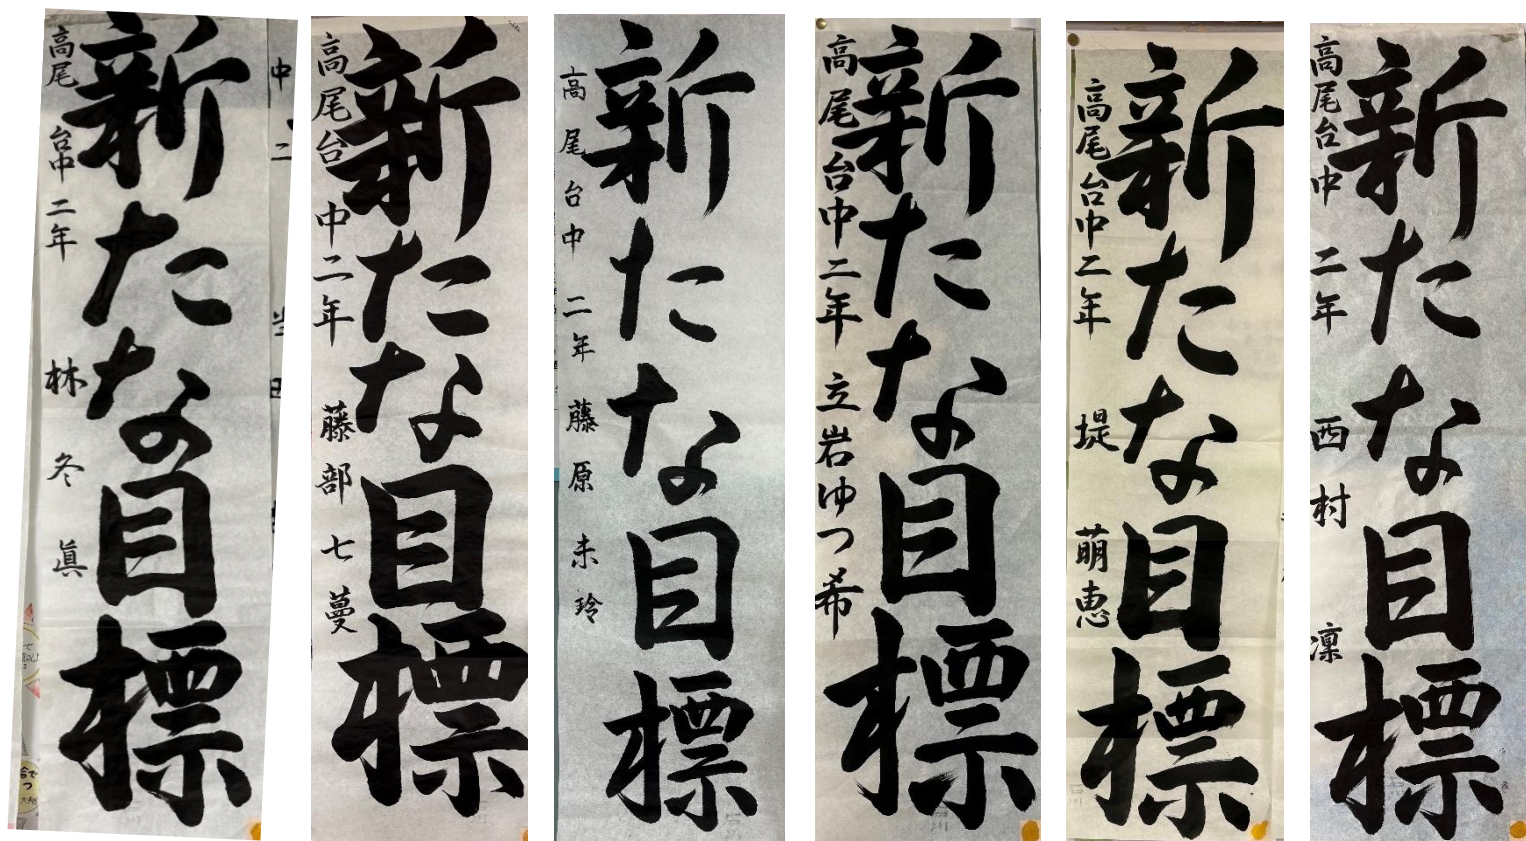 新たな目標
高尾台中 二年 林 冬 眞
新たな目標
高尾台中 二年 藤部 七蔓
新たな目標
高尾台中 二年 藤原 未玲
新たな目標
高尾台中 二年 立岩ゆつ希
新たな目標
高尾台中 二年 堤 萌恵
新たな目標
高尾台中 二年 西村 凜